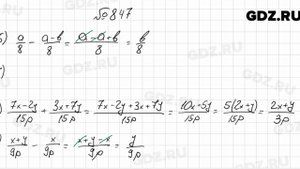 GDZ.RU
№847
) a/8 - (a-b)/8 = (a-a+b)/8 = b/8
)
) (7x-2y)/15p + (3x+7y)/15p = (7x-2y+3x+7y)/15p = (10x+5y)/15p = 5(2x+y)/15p = (2x+y)/3p
) (x+y)/9p - x/9p = (x+y-x)/9p = y/9p
GDZ.RU